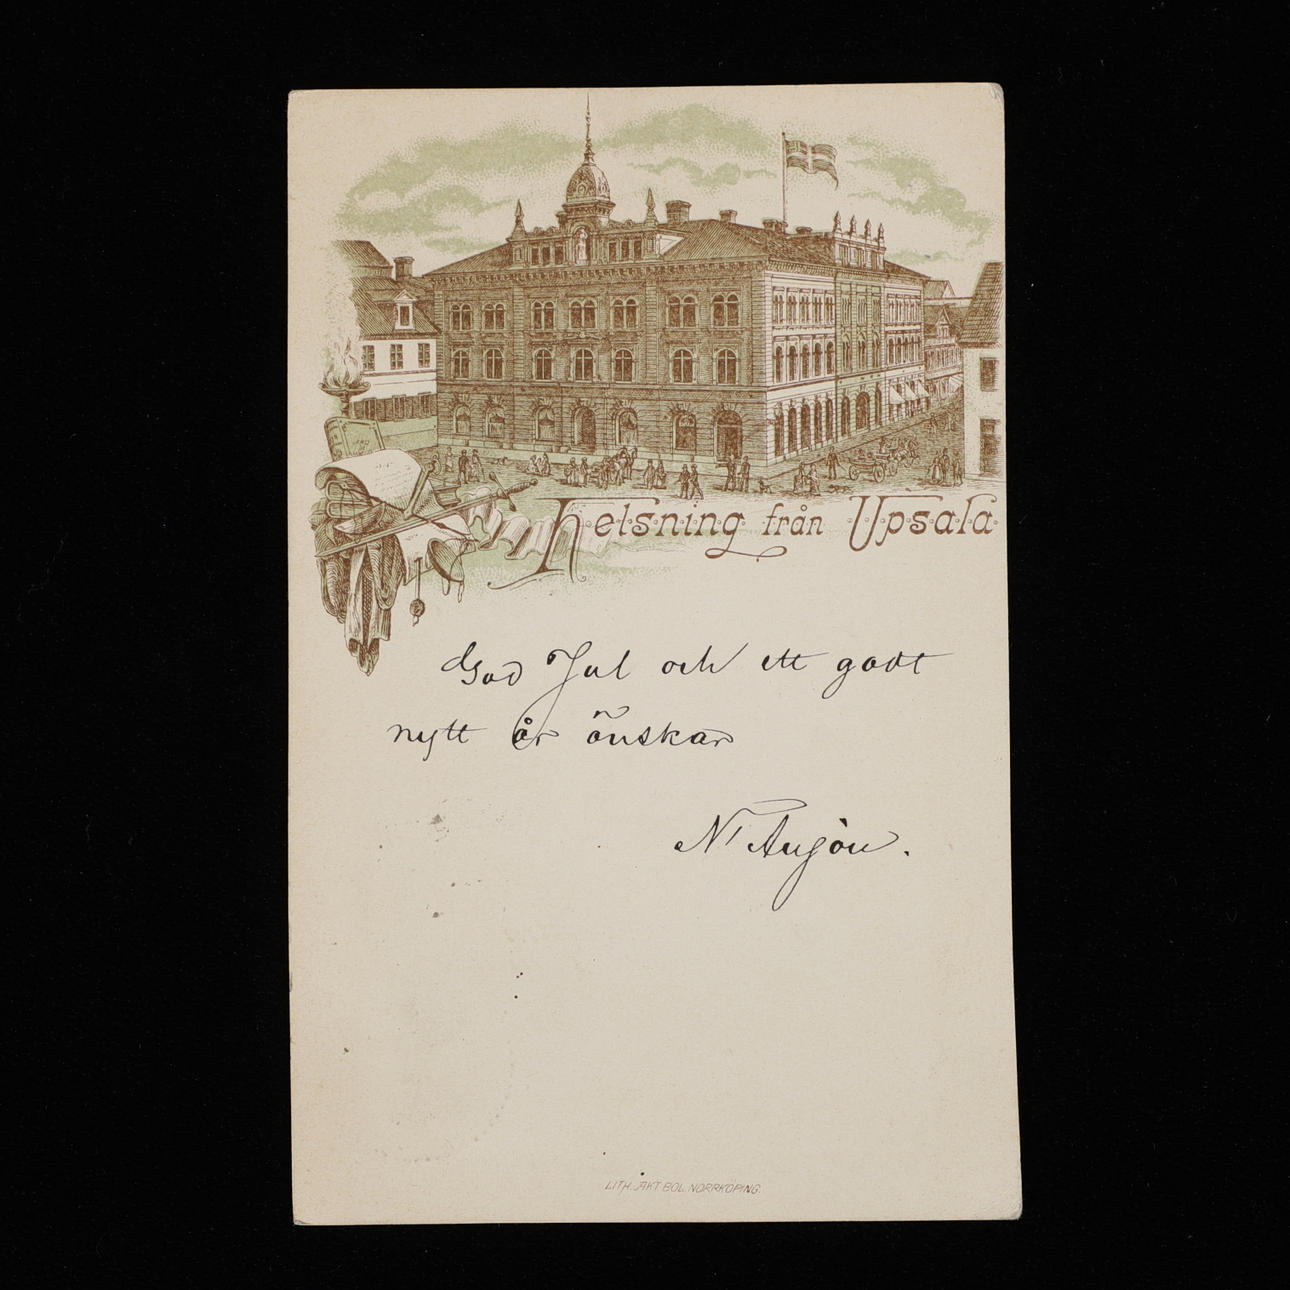 Helsning från Upsala
God Jul och ett godt
nytt år önskar
N
LITH. AKT. BOL. NORRKÖPING.